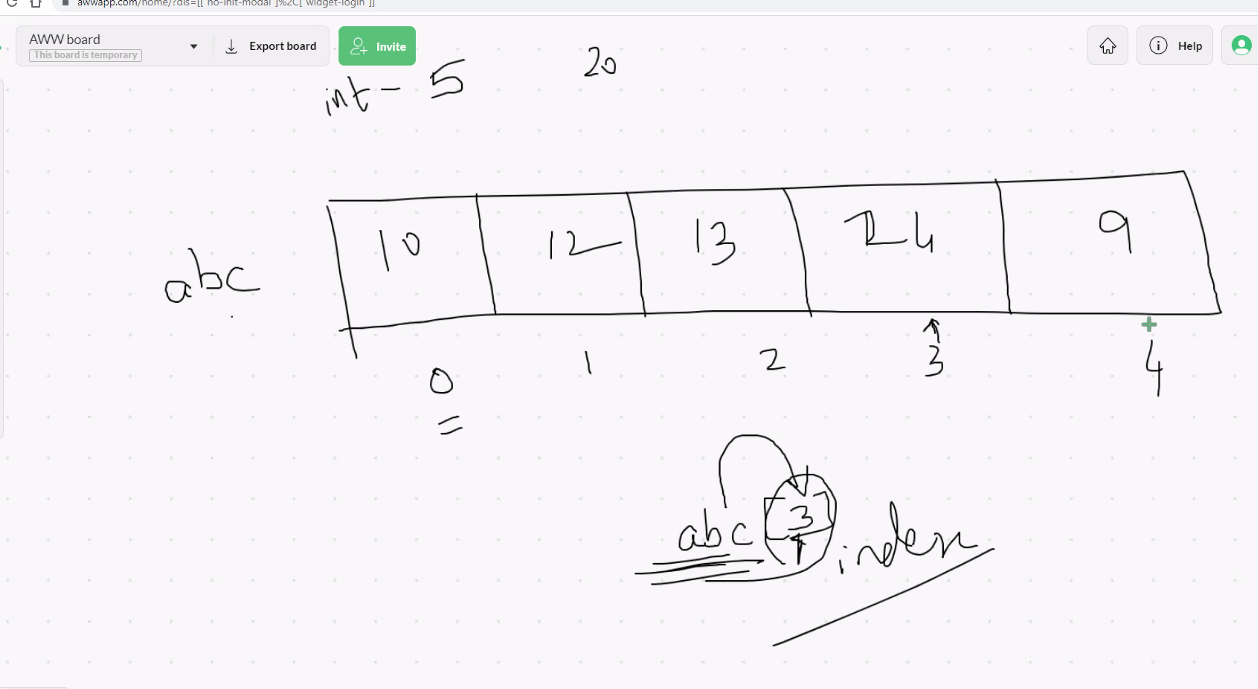 awwapp.com/home/?dis=[["no-init-modal"]%2C["widget-login"]]
AWW board
This board is temporary
Export board
Invite
Help
int - 5 20
abc
10 12 13 24 9
0 1 2 3 4
abc [3] index